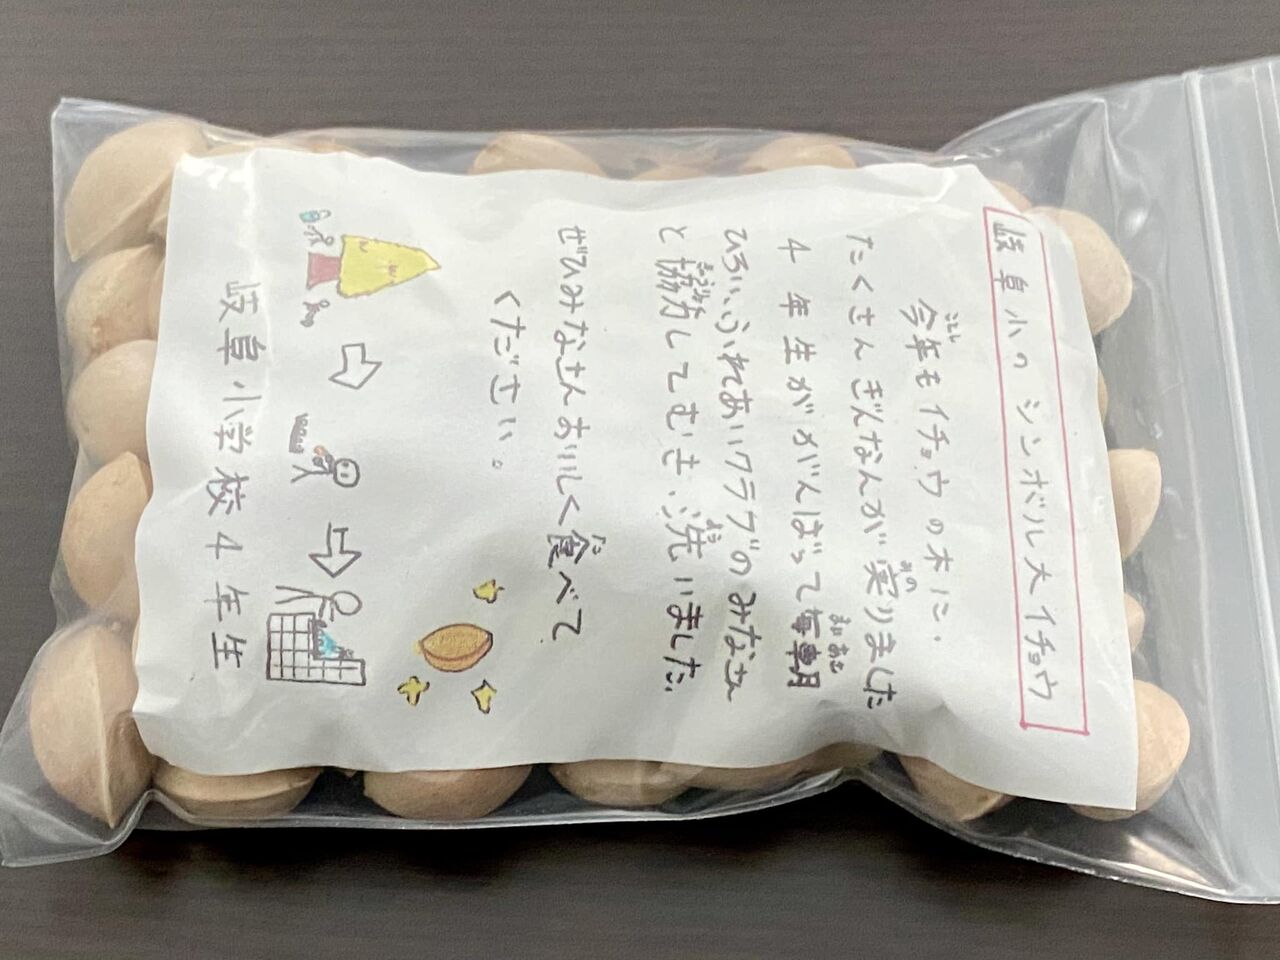 岐阜小のシンボル大イチョウ
今年もイチョウの木に、
たくさんぎんなんが実りました
4年生ががんばって毎朝
ひろい、ふれあいクラブのみなさん
と協力してむき、洗いました。
ぜひみなさんおいしく食べて
ください。
岐阜小学校4年生